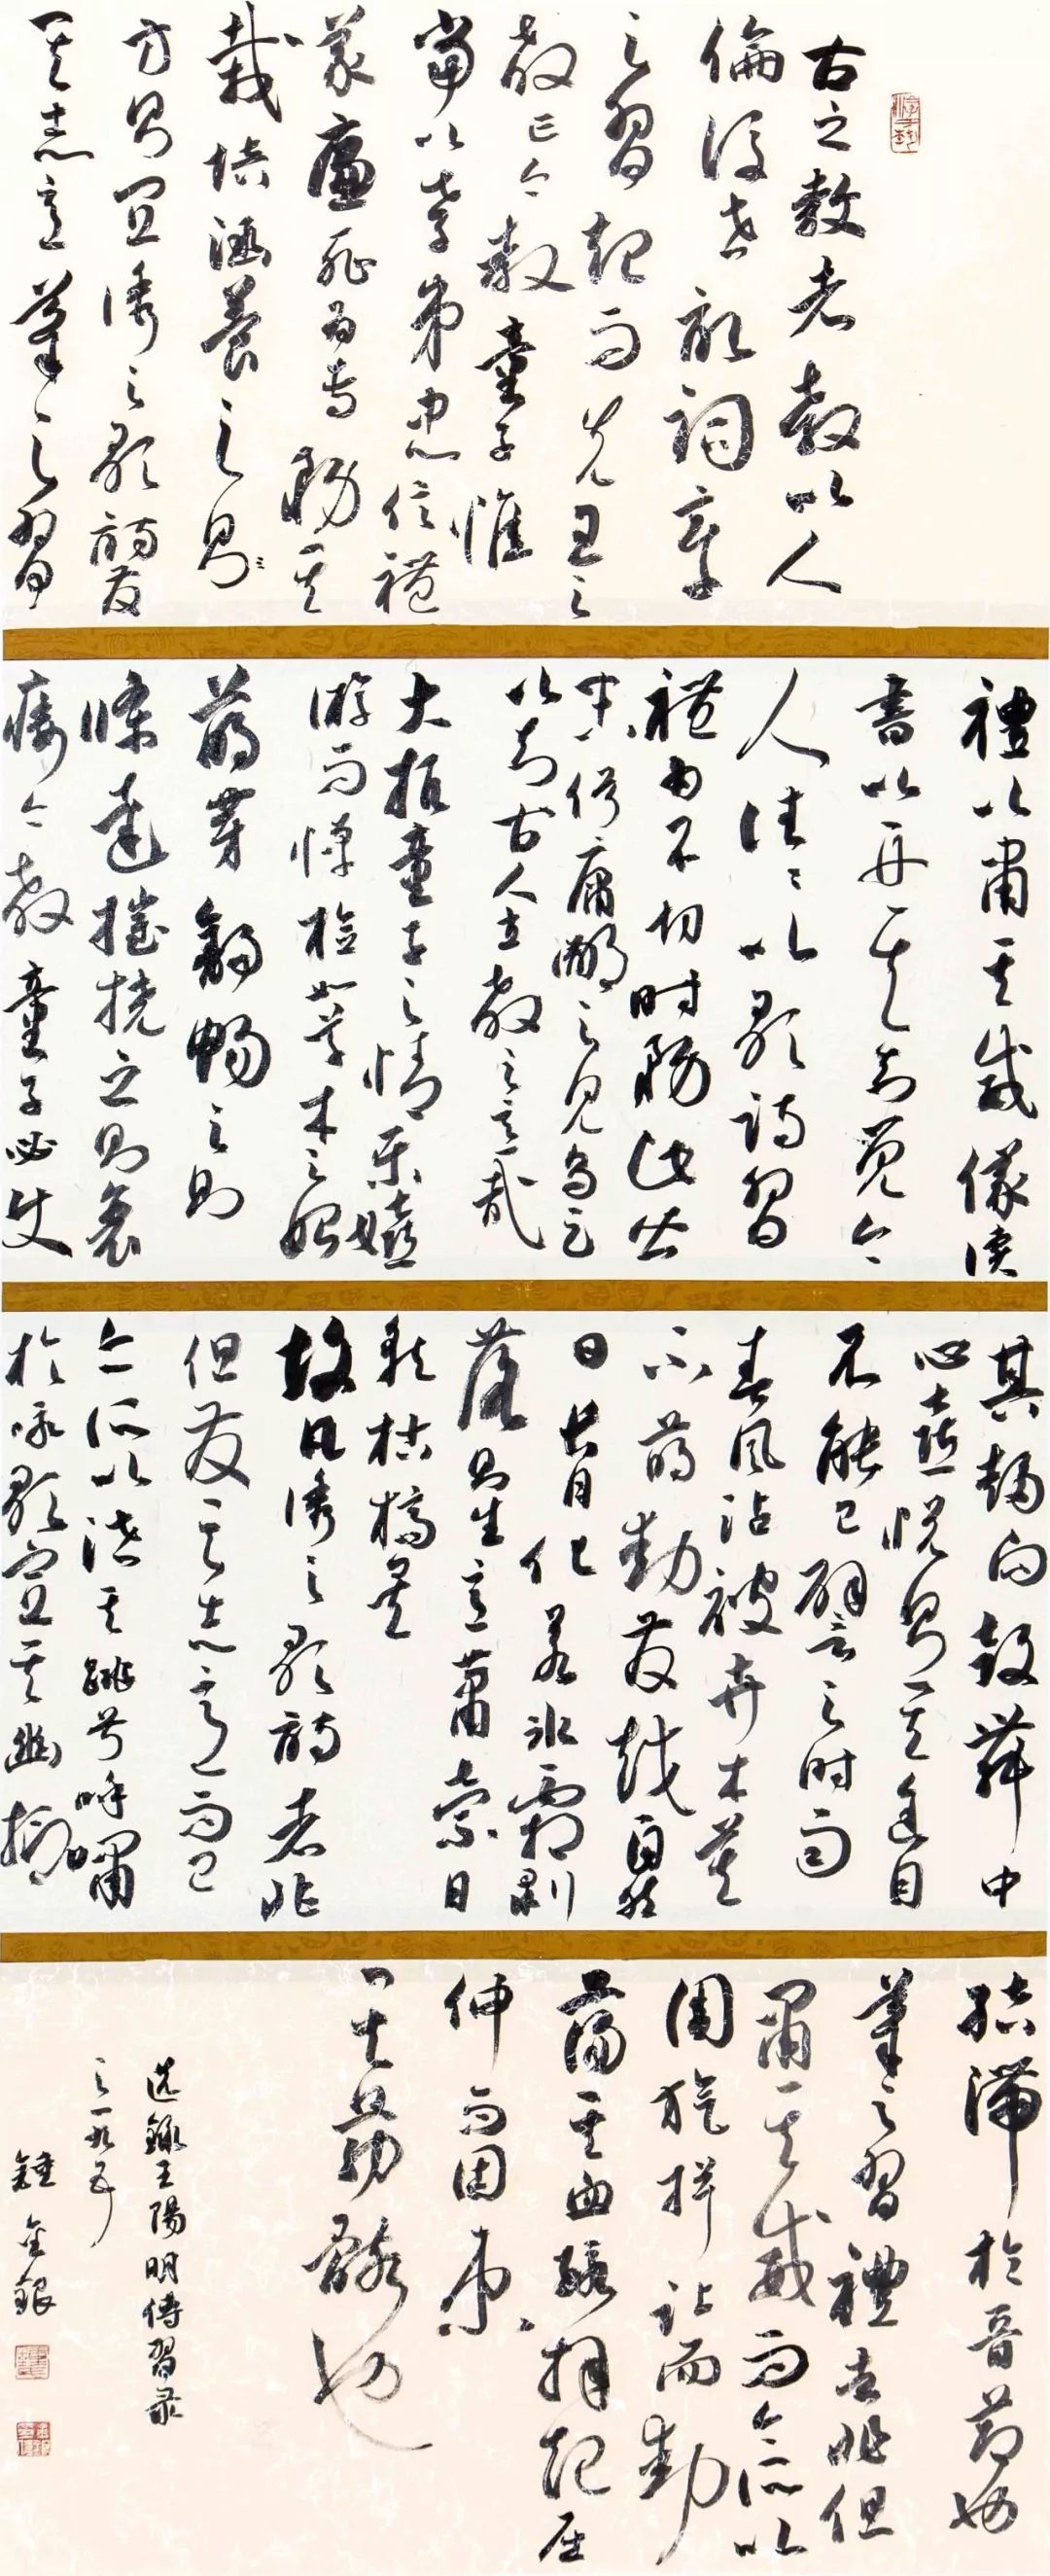 古之教者教以人
倫後世記詞章
之習起而先王之
教亡今教童子惟
當以孝弟忠信禮
義廉恥為專務其
栽培涵養之則
方則宜誘之歌詩發
其志意導之習
禮以肅其威儀讀
書以開其知覺今
人往〻以歌詩習
禮為不切時務此皆
末俗庸鄙之見烏足
以知古人立教之意哉
大抵童子之情樂嬉
游而憚檢如草木之始
萌芽舒暢之則
條達摧撓之則衰
痿今教童子必使
其趨向鼓舞中
心喜悅則其進自
不能已譬之時雨
春風沾被卉木莫
不萌動發越自然
日長月化若冰霜剝
落則生意蕭索日
就枯槁矣
故凡誘之歌詩者非
但發其志意而已
亦所以洩其跳号呼嘯
於咏歌宣其幽抑
結滯於音節也
導之習禮者非但
肅其威而亦所以
周旋揖讓而動
蕩其血脈拜起屈
伸而固束
其筋骸也
选錄王陽明傳習录
之一九五年
鍾金銀